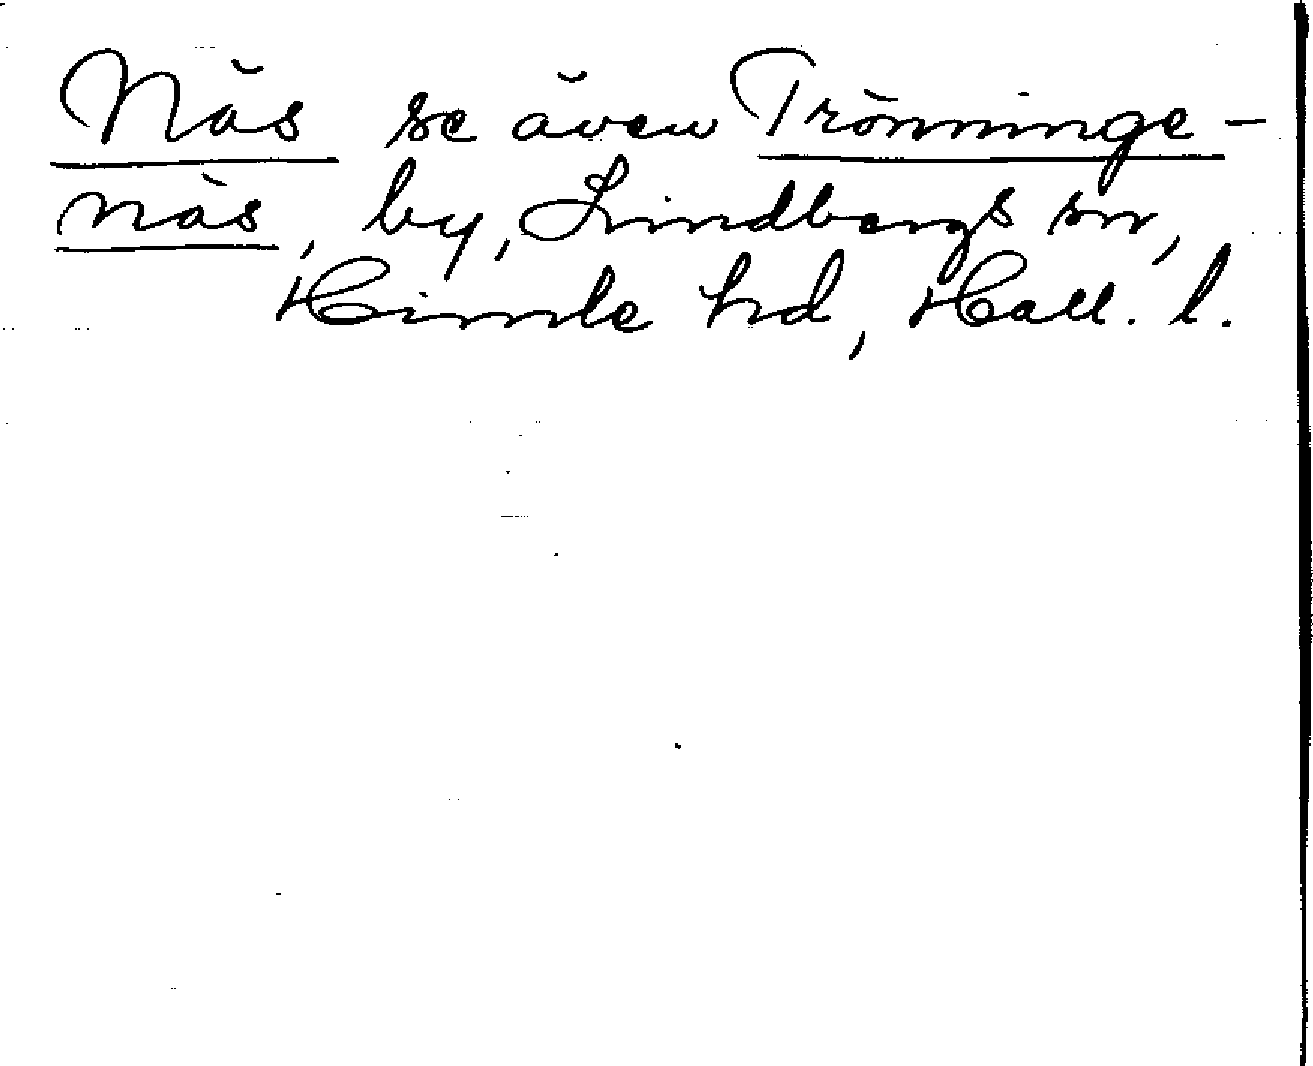 Näs se även Trönninge-
näs, by, Lindbergs sn,
Himle hd, Hall. l.